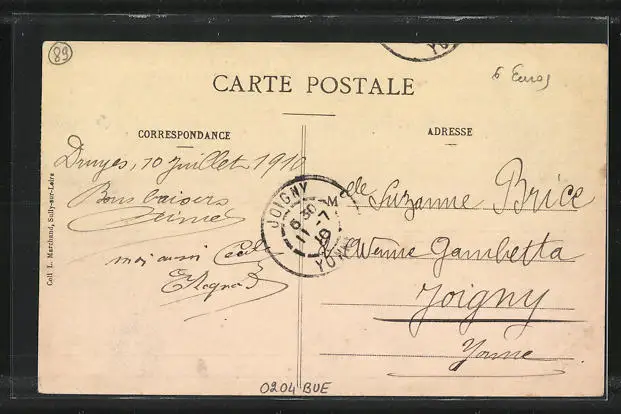 89
6 Euros
YO
CARTE POSTALE
CORRESPONDANCE
ADRESSE
Coll L. Marchand, Sully-sur-Loire
Druyes, 10 Juillet 1910
Bons baisers
moi aussi Cécile
JOIGNY
6 30
11 - 7
10
YONNE
Mlle Suzanne Brice
Avenue Gambetta
Joigny
Yonne
0204 BUE